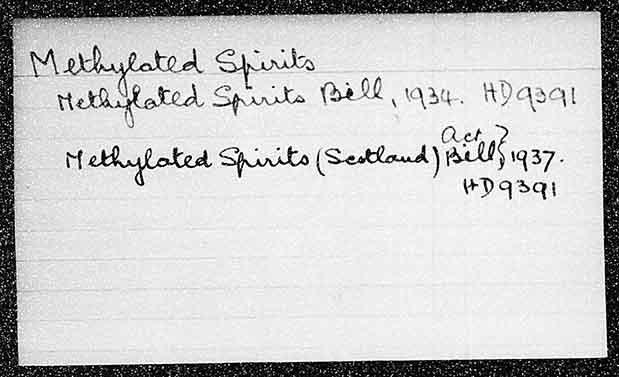 Methylated Spirits
Methylated Spirits Bill, 1934. HD9391
Act }
Methylated Spirits (Scotland) Bill, 1937.
HD9391